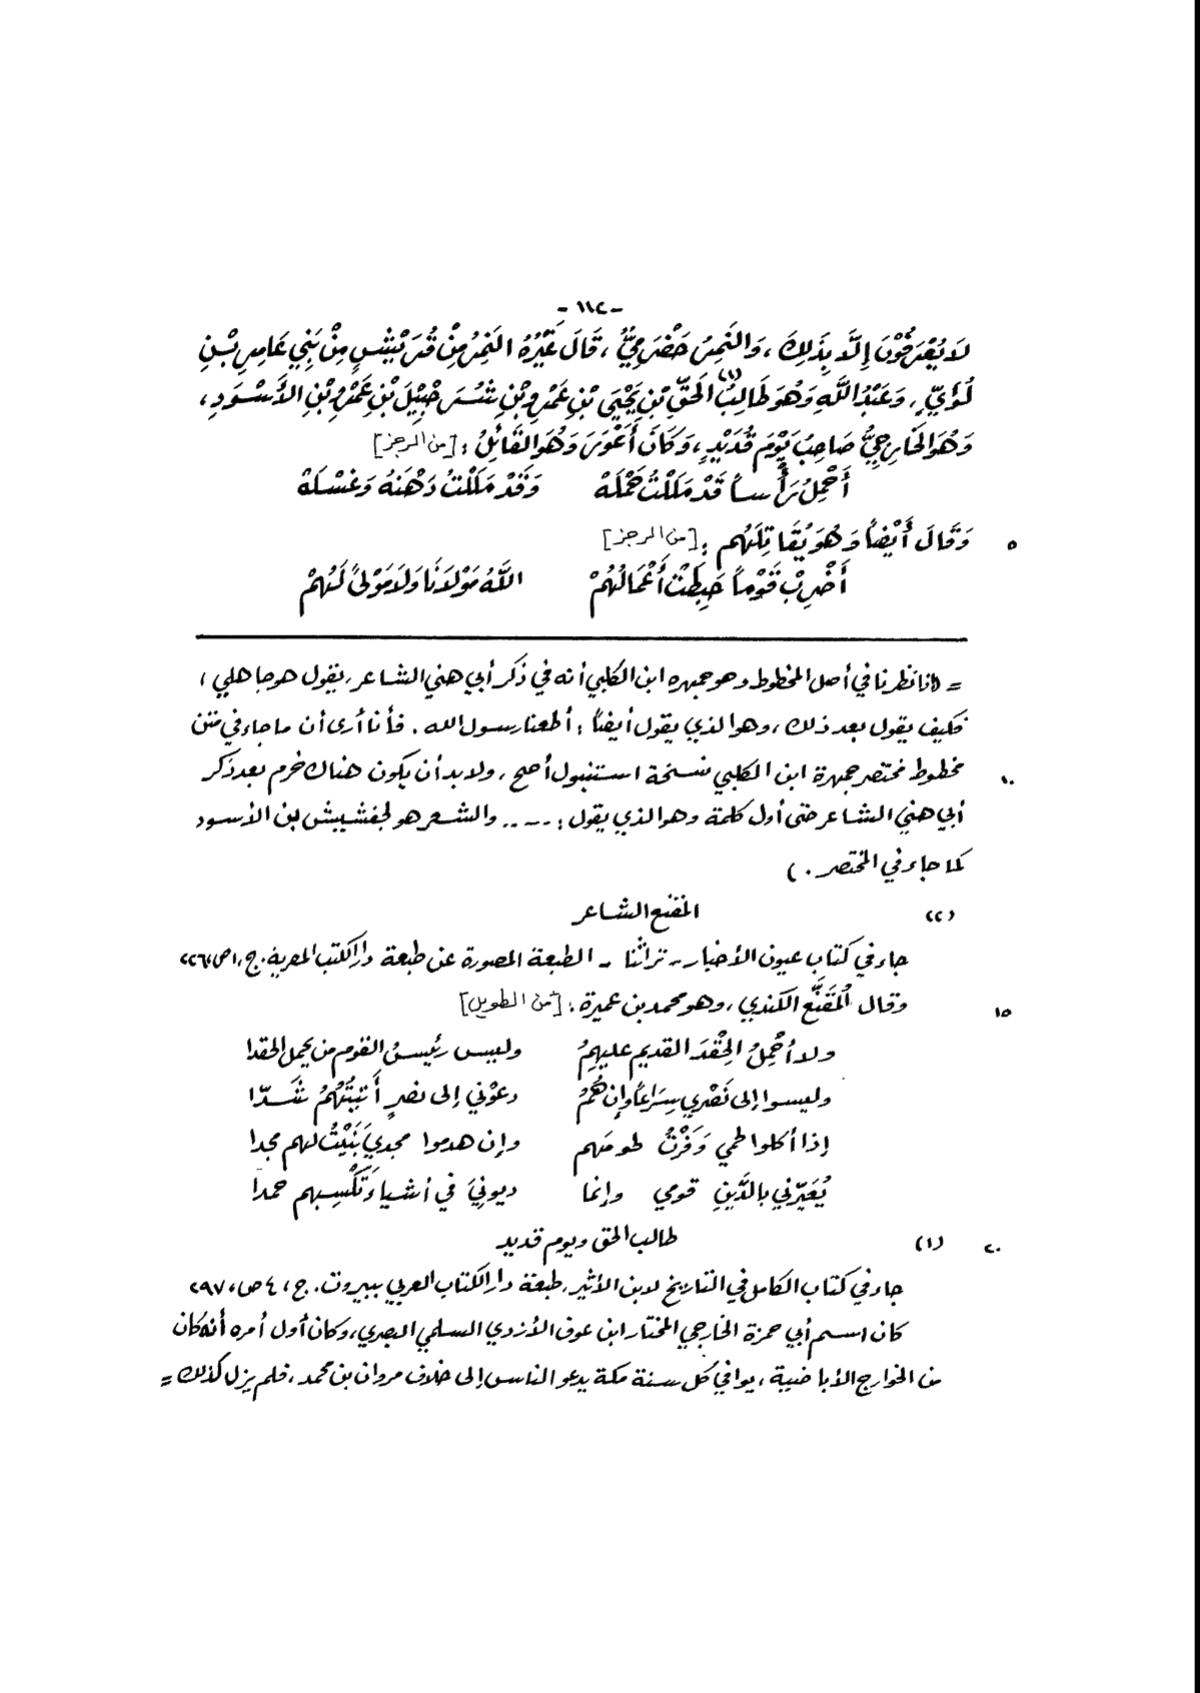 - ١١٢ -
لَا يُعْرَفُوْنَ إِلَّا بِذَلِكَ ، وَالنَّمِرُ حَضْرَمِيٌّ ، قَالَ غَيْرُهُ النَّمِرُ مِنْ قُرَيْشٍ مِنْ بَنِي عَامِرِ بْنِ
لُؤَيٍّ ، وَعَبْدُ اللَّهِ وَهُوَ طَالِبُ الحَقِّ (١) بْنِ يَحْيَى بْنِ عَمْرِو بْنِ شُرَحْبِيْلَ بْنِ عَمْرِو بْنِ الأَسْوَدِ ،
وَهُوَ الخَارِجِيُّ صَاحِبُ يَوْمِ قُدَيْدٍ ، وَكَانَ أَعْوَرَ وَهُوَ القَائِلُ : [من الرجز]
أَحْمِلُ رَأْساً قَدْ مَلَلْتُ حَمْلَهْ وَقَدْ مَلَلْتُ دَهْنَهُ وَغَسْلَهْ
٥ وَقَالَ أَيْضاً وَهُوَ يُقَاتِلُهُم : [من الرجز]
أَضْرِبْ قَوْماً حَبِطَتْ أَعْمَالُهُمْ اللَّهُ مَوْلَانَا وَلَا مَوْلىً لَهُمْ
= لأنا نظرنا في أصل المخطوط وهو جمهرة ابن الكلبي أنه في ذكر أبي هني الشاعر ، يقول هو جاهلي ،
فكيف يقول بعد ذلك ، وهو الذي يقول أيضاً : أطعنا رسول الله . فأنا أرى أن ما جاء في متن
١٠ مخطوط مختصر جمهرة ابن الكلبي نسخة استنبول أصح ، ولا بد أن يكون هناك خرم بعد ذكر
أبي هني الشاعر حتى أول كلمة وهو الذي يقول : .... والشعر هو لجفشيش بن الأسود
كما جاء في المختصر . )
(٢) المقنع الشاعر
جاء في كتاب عيون الأخبار - تراثنا - الطبعة المصورة عن طبعة دار الكتب المصرية . ج ، ١ ص ، ٢٢٦
١٥ وقال المُقَنَّع الكندي ، وهو محمد بن عميرة : [من الطويل]
ولا أَحْمِلُ الحِقْدَ القديم عليهِمُ وليس رئيسُ القوم من يحمل الحقدا
وليسوا إلى نَصْري سِرَاعاً وإن هُمُ دعَوْني إلى نصرٍ أَتيتُهُمُ شَدّا
إذا أكلوا لحمي وَفَرْتُ لحومَهم وإن هدموا مجدي بَنَيْتُ لهم مجدا
يُعَيّرُني بالدَّيْنِ قومي وإنما ديونيَ في أشياءَ تَكْسِبهم حمدا
٢٠ (١) طالب الحق ويوم قديد
جاء في كتاب الكامل في التاريخ لابن الأثير ، طبعة دار الكتاب العربي ببيروت . ج ، ٤ ص ، ٢٩٧
كان اسم أبي حمزة الخارجي المختار ابن عوف الأزدي السلمي البصري ، وكان أول أمره أنه كان
من الخوارج الأباضية ، يوافي كل سنة مكة يدعو الناس إلى خلاف مروان بن محمد ، فلم يزل كذلك =